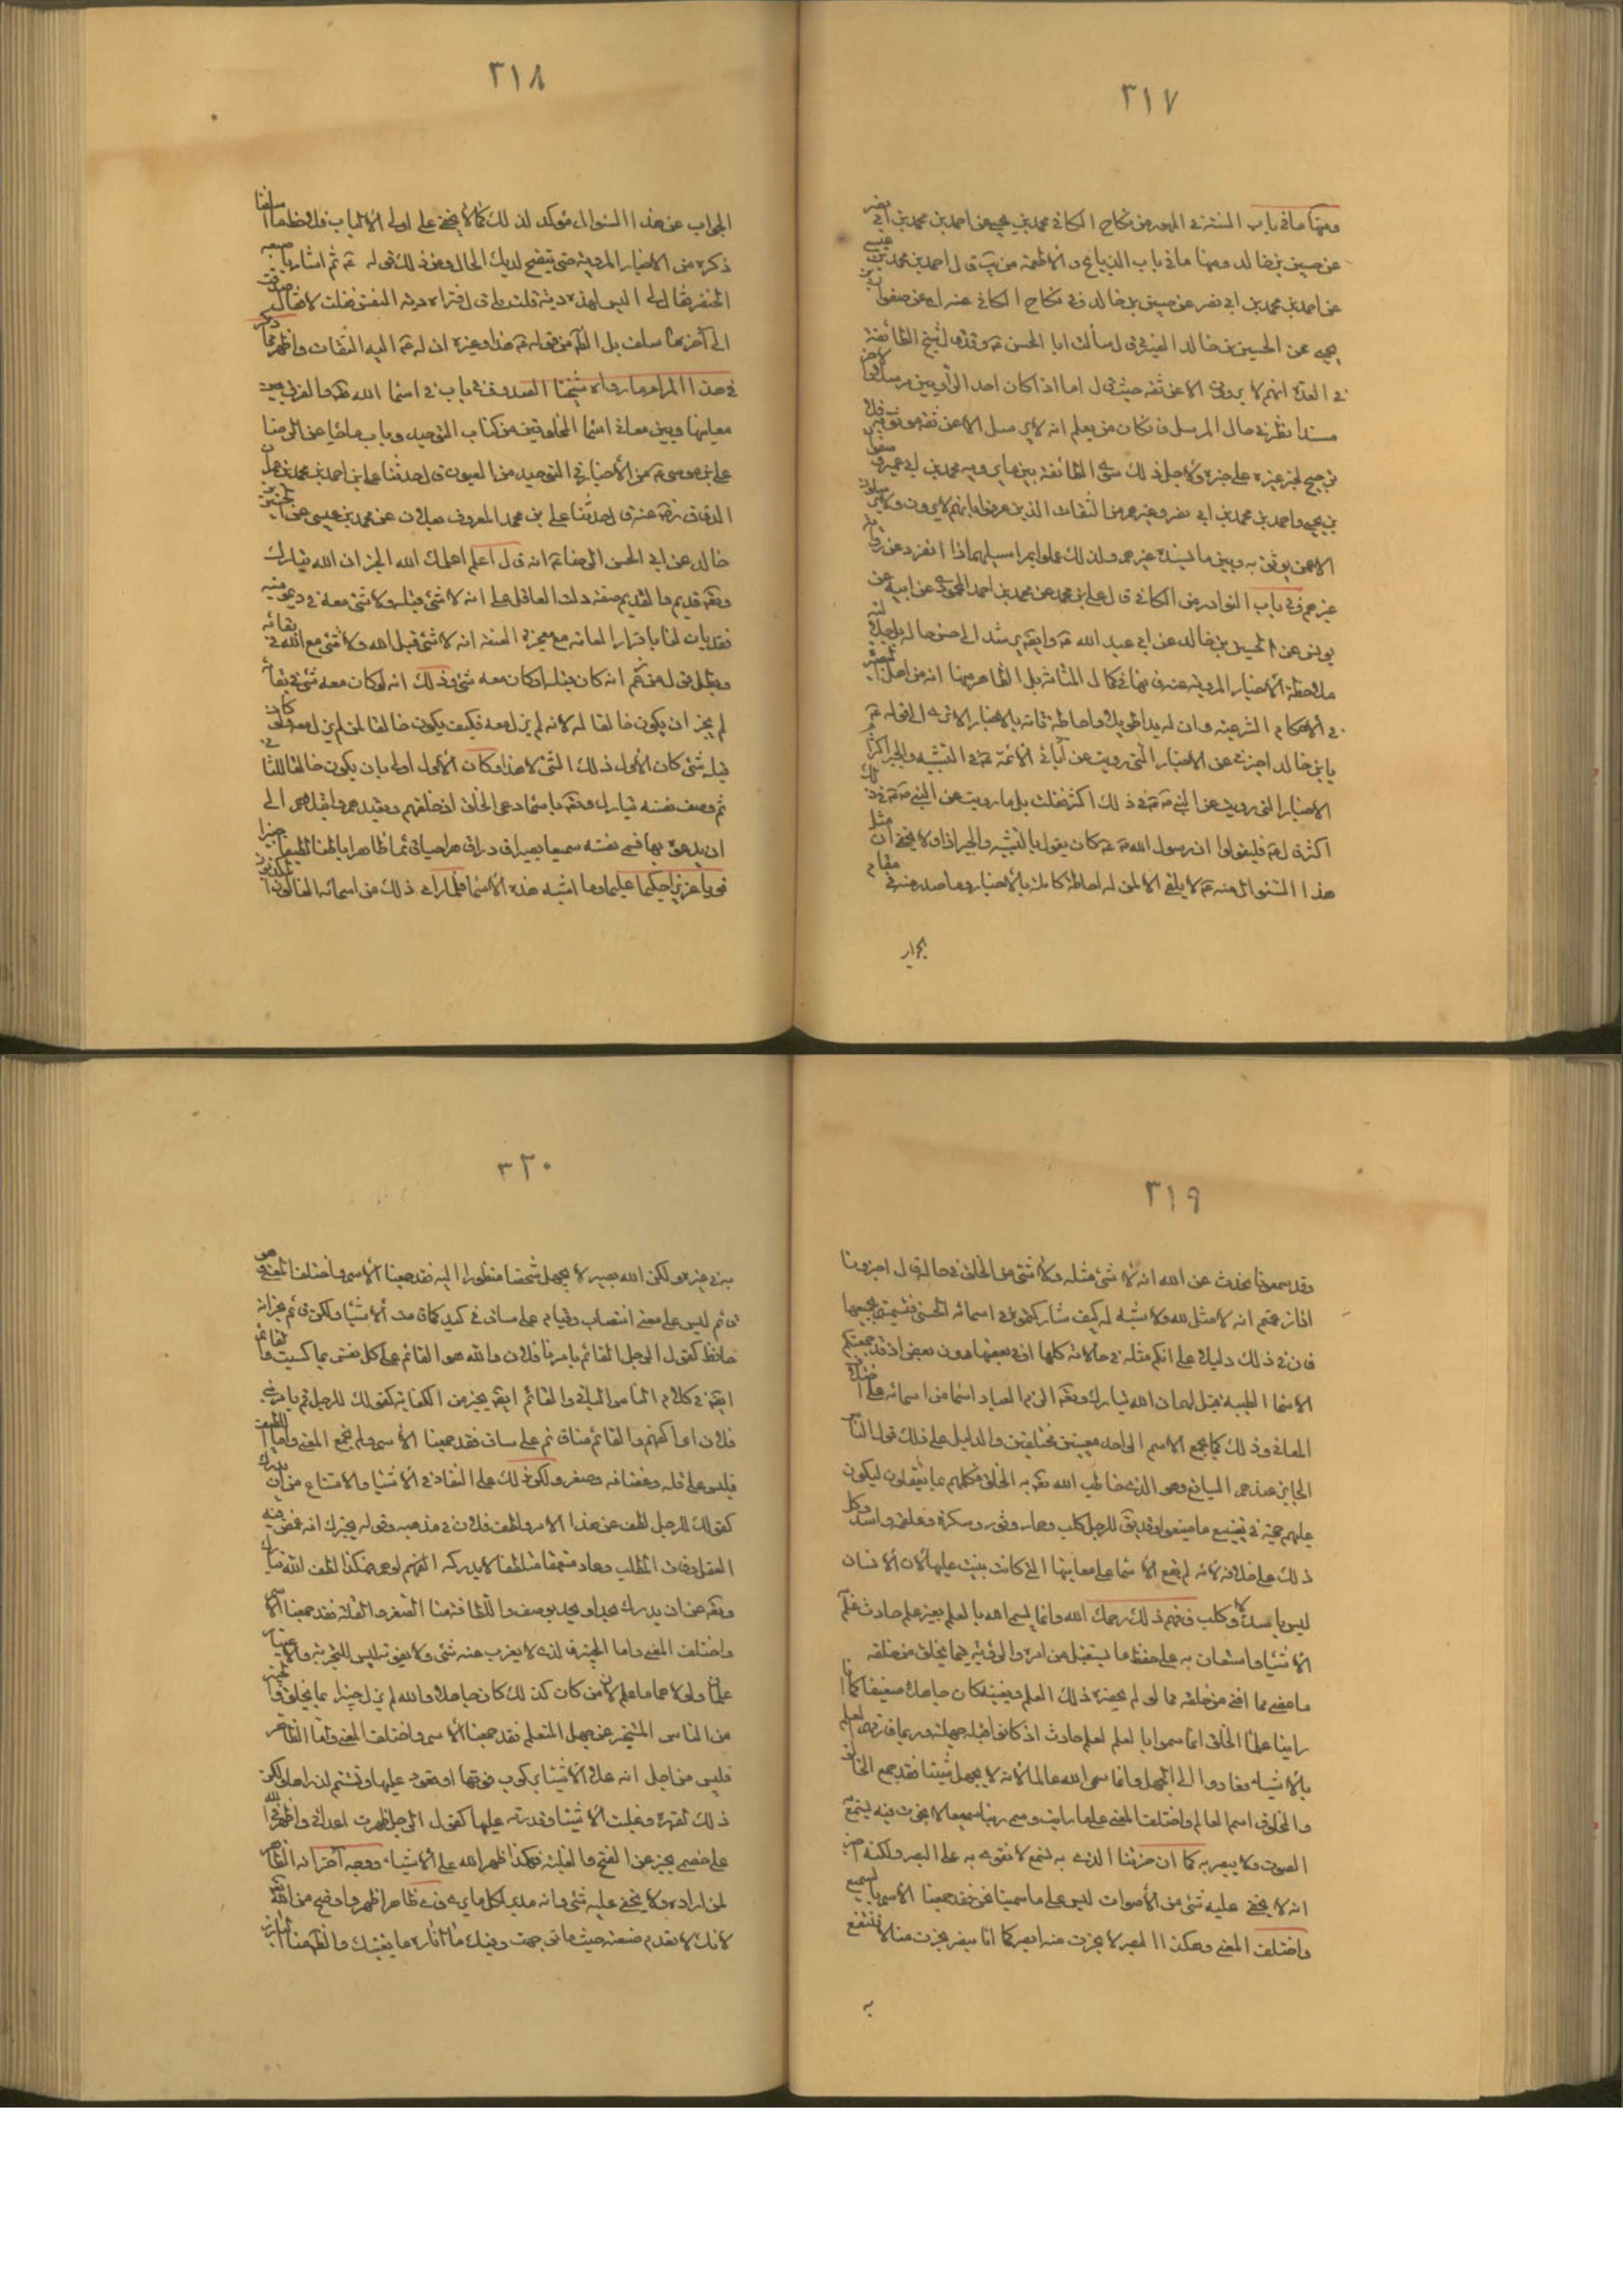 ٣١٧
ومنها ما في باب السنة في المهور من نكاح الكافي محمد بن يحيى عن احمد بن محمد بن ابي نصر
عن حسين بن خالد ومنها ما في باب الذبائح والاطعمة من يب قال احمد بن محمد بن عيسى
عن احمد بن محمد بن ابي نصر عن حسين بن خالد وفي نكاح الكافي عنه اي عن صفوان بن
يحيى عن الحسين بن خالد الصيرفي قال سألت ابا الحسن ع وقد قال شيخ الطائفة
في العدة انهم لا يروون الا عن ثقة حيث قال اما اذا كان احد الراويين مرسلا والاخر
مسندا نظر في حال المرسل فان كان ممن يعلم انه لا يرسل الا عن ثقة موثوق به فلا
ترجيح لخبر غيره على خبره ولاجل ذلك سوى الطائفة بين ما يرويه محمد بن ابي عمير وصفوان
بن يحيى واحمد بن محمد بن ابي نصر وغيرهم من الثقات الذين عرفوا بانهم لا يروون ولا يرسلون
الا عمن يوثق به وبين ما يسنده غيرهم ولذلك عملوا بمراسيلهم اذا انفرد عن رواية
غيرهم وفي باب النوادر من الكافي قال علي بن محمد عن محمد بن احمد المحمودي عن ابيه عن
يونس عن الحسين بن خالد عن ابي عبد الله ع وايضا يرشد الى حسن حاله بل جلالته
ملاحظة الاخبار المروية عنه فانها في كمال المتانة بل الظاهر منها انه من اهل البصيرة
في الاحكام الشرعية وان له يدا طويلا واحاطة تامة بالاخبار الا ترى الى قوله ع
يا بن خالد اخبرني عن الاخبار التي رويت عن آبائي الائمة ع في التشبيه والجبر اكثر ام
الاخبار التي رويت عن النبي ص في ذلك اكثر فقلت بل ما رويت عن النبي ص في ذلك
اكثر قال ع فليقولوا ان رسول الله ص كان يقول بالتشبيه والجبر اذا ولا يخفى ان مثل
هذا السئوال منه ع لا يلقى الا لمن له احاطة كاملة بالاخبار وما صدر منه في مقام
الجواب
٣١٨
الجواب عن هذا السئوال مؤكد لذلك كما لا يخفى على اولي الالباب فلاحظ ما اسلفنا
ذكره من الاخبار المروية حتى يتضح لديك الحال ومن ذلك قوله ع ثم اشار باصبعه
الخنصر فقال لي اليس لهذه دية قلت بلى قال فتراه دية النفس فقلت لا فقال صدقت
الى آخر ما سلف بل الظاهر من قوله ع هذا وغيره ان له ع اليه التفات واظهر مما ذكر
في هذا المرام ما رواه شيخنا الصدوق في باب في اسماء الله تعالى والفرق بين
معانيها وبين معاني اسماء المخلوقين من كتاب التوحيد وباب ما جاء عن الرضا
علي بن موسى ع من الاخبار في التوحيد من العيون قال حدثنا علي بن احمد بن محمد بن عمران
الدقاق رحمه الله قال حدثنا علي بن محمد المعروف بعلان عن محمد بن عيسى عن الحسين بن
خالد عن ابي الحسن الرضا ع انه قال اعلم اعلمك الله الخير ان الله تبارك
وتعالى قديم والقديم صفة دلت العاقل على انه لا شئ قبله ولا شئ معه في ديموميته
فقد بان لنا باقرار العامة مع معجزة الصفة انه لا شئ قبل الله ولا شئ مع الله في بقائه
وبطل قول من زعم انه كان قبله او كان معه شئ وذلك انه لو كان معه شئ في بقائه
لم يجز ان يكون خالقا له لانه لم يزل معه فكيف يكون خالقا لمن لم يزل معه ولو كان
قبله شئ كان الاول ذلك الشئ لا هذا وكان الاول اولى بان يكون خالقا للثاني
ثم وصف نفسه تبارك وتعالى باسماء دعى الخلق اذ خلقهم وتعبدهم وابتلاهم الى
ان يدعوه بها فسمى نفسه سميعا بصيرا قادرا قاهرا حيا قيوما ظاهرا باطنا لطيفا خبيرا
قويا عزيزا حكيما عليما وما اشبه هذه الاسماء فلما رأى ذلك من اسمائه الغالون المكذبون
٣١٩
وقد سمعونا نحدث عن الله انه لا شئ مثله ولا شئ من الخلق في حاله قال اخبرونا
اذا زعمتم انه لا مثل لله ولا شبه له كيف شاركتموه في اسمائه الحسنى فتسميتم بجميعها
فان في ذلك دليلا على انكم مثله في حالاته كلها او في بعضها دون بعض اذ قد جمعتكم
الاسماء الطيبة قيل لهم ان الله تبارك وتعالى الزم العباد اسماء من اسمائه على اختلاف
المعاني وذلك كما يجمع الاسم الواحد معنيين مختلفين والدليل على ذلك قول الناس
الجائز عندهم السايغ وهو الذي خاطب الله تعالى به الخلق فكلمهم بما يعقلون ليكون
عليهم حجة في تضييع ما ضيعوا وقد يقال للرجل كلب وحمار وثور وسكرة وعلقمة واسد وكل
ذلك على خلافه لانه لم تقع الاسماء على معانيها التي كانت بنيت عليها لان الانسان
ليس باسد ولا كلب فافهم ذلك رحمك الله وانما يسمى الله بالعلم بغير علم حادث علم به
الاشياء واستعان به على حفظ ما يستقبل من امره والروية فيما يخلق من خلقه
ما مضى مما افنى من خلقه مما لو لم يحضره ذلك العلم ويغيبه كان جاهلا ضعيفا كما انا
راينا علماء الخلق انما سموا بالعلم لعلم حادث اذ كانوا قبله جهلة وربما فارقهم العلم
بالاشياء فعادوا الى الجهل وانما سمى الله عالما لانه لا يجهل شيئا فقد جمع الخالق
والمخلوق اسم العالم واختلف المعنى على ما رايت وسمى ربنا سميعا لا بخرت فيه يسمع به
الصوت ولا يبصر به كما ان خرتنا الذي به نسمع لا نقوى به على البصر ولكنه اخبر
انه لا يخفى عليه شئ من الاصوات ليس على ما سمينا نحن فقد جمعنا الاسم بالسميع
واختلف المعنى وهكذا البصر لا بخرت منه ابصر كما انا نبصر بخرت منا لا ننتفع
به
٣٢٠
به في غيره ولكن الله بصير لا يجهل شخصا منظورا اليه فقد جمعنا الاسم واختلف المعنى وهو
قائم ليس على معنى انتصاب وقيام على ساق في كبد كما قامت الاشياء ولكن قائم يخبر انه
حافظ كقول الرجل القائم بامرنا فلان والله هو القائم على كل نفس بما كسبت والقائم
ايضا في كلام الناس الباقي والقائم ايضا يخبر عن الكفاية كقولك للرجل قم بامر بني
فلان اي اكفهم والقائم منا قائم على ساق فقد جمعنا الاسم ولم يجمع المعنى واما اللطيف
فليس على قلة وقضافة وصغر ولكن ذلك على النفاذ في الاشياء والامتناع من ان يدرك
كقولك للرجل لطف عن هذا الامر ولطف فلان في مذهبه وقوله يخبرك انه غمض فيه
العقل وفات الطلب وعاد متعمقا متلطفا لا يدركه الوهم فهكذا لطف الله تبارك
وتعالى عن ان يدرك بحد او يحد بوصف واللطافة منا الصغر والقلة فقد جمعنا الاسم
واختلف المعنى واما الخبير فالذي لا يعزب عنه شئ ولا يفوته ليس للتجربة ولا للاعتبار
علما ولولاهما ما علم لان من كان كذلك كان جاهلا والله لم يزل خبيرا بما يخلق والخبير
من الناس المستخبر عن جهل المتعلم فقد جمعنا الاسم واختلف المعنى واما الظاهر
فليس من اجل انه علا الاشياء بركوب فوقها او قعود عليها وتسنم لذراها ولكن
ذلك لقهره وغلبته الاشياء وقدرته عليها كقول الرجل ظهرت على اعدائي واظهرني الله
على خصمي يخبر عن الفتح والغلبة فهكذا ظهر الله على الاشياء ووجه آخر انه الظاهر
لمن اراده ولا يخفى عليه شئ وانه مدبر لكل ما يرى فاي ظاهر اظهر واوضح من الله تعالى
لانك لا تعدم صنعته حيث ما توجهت وفيك من آثاره ما يغنيك والظاهر منا البارز